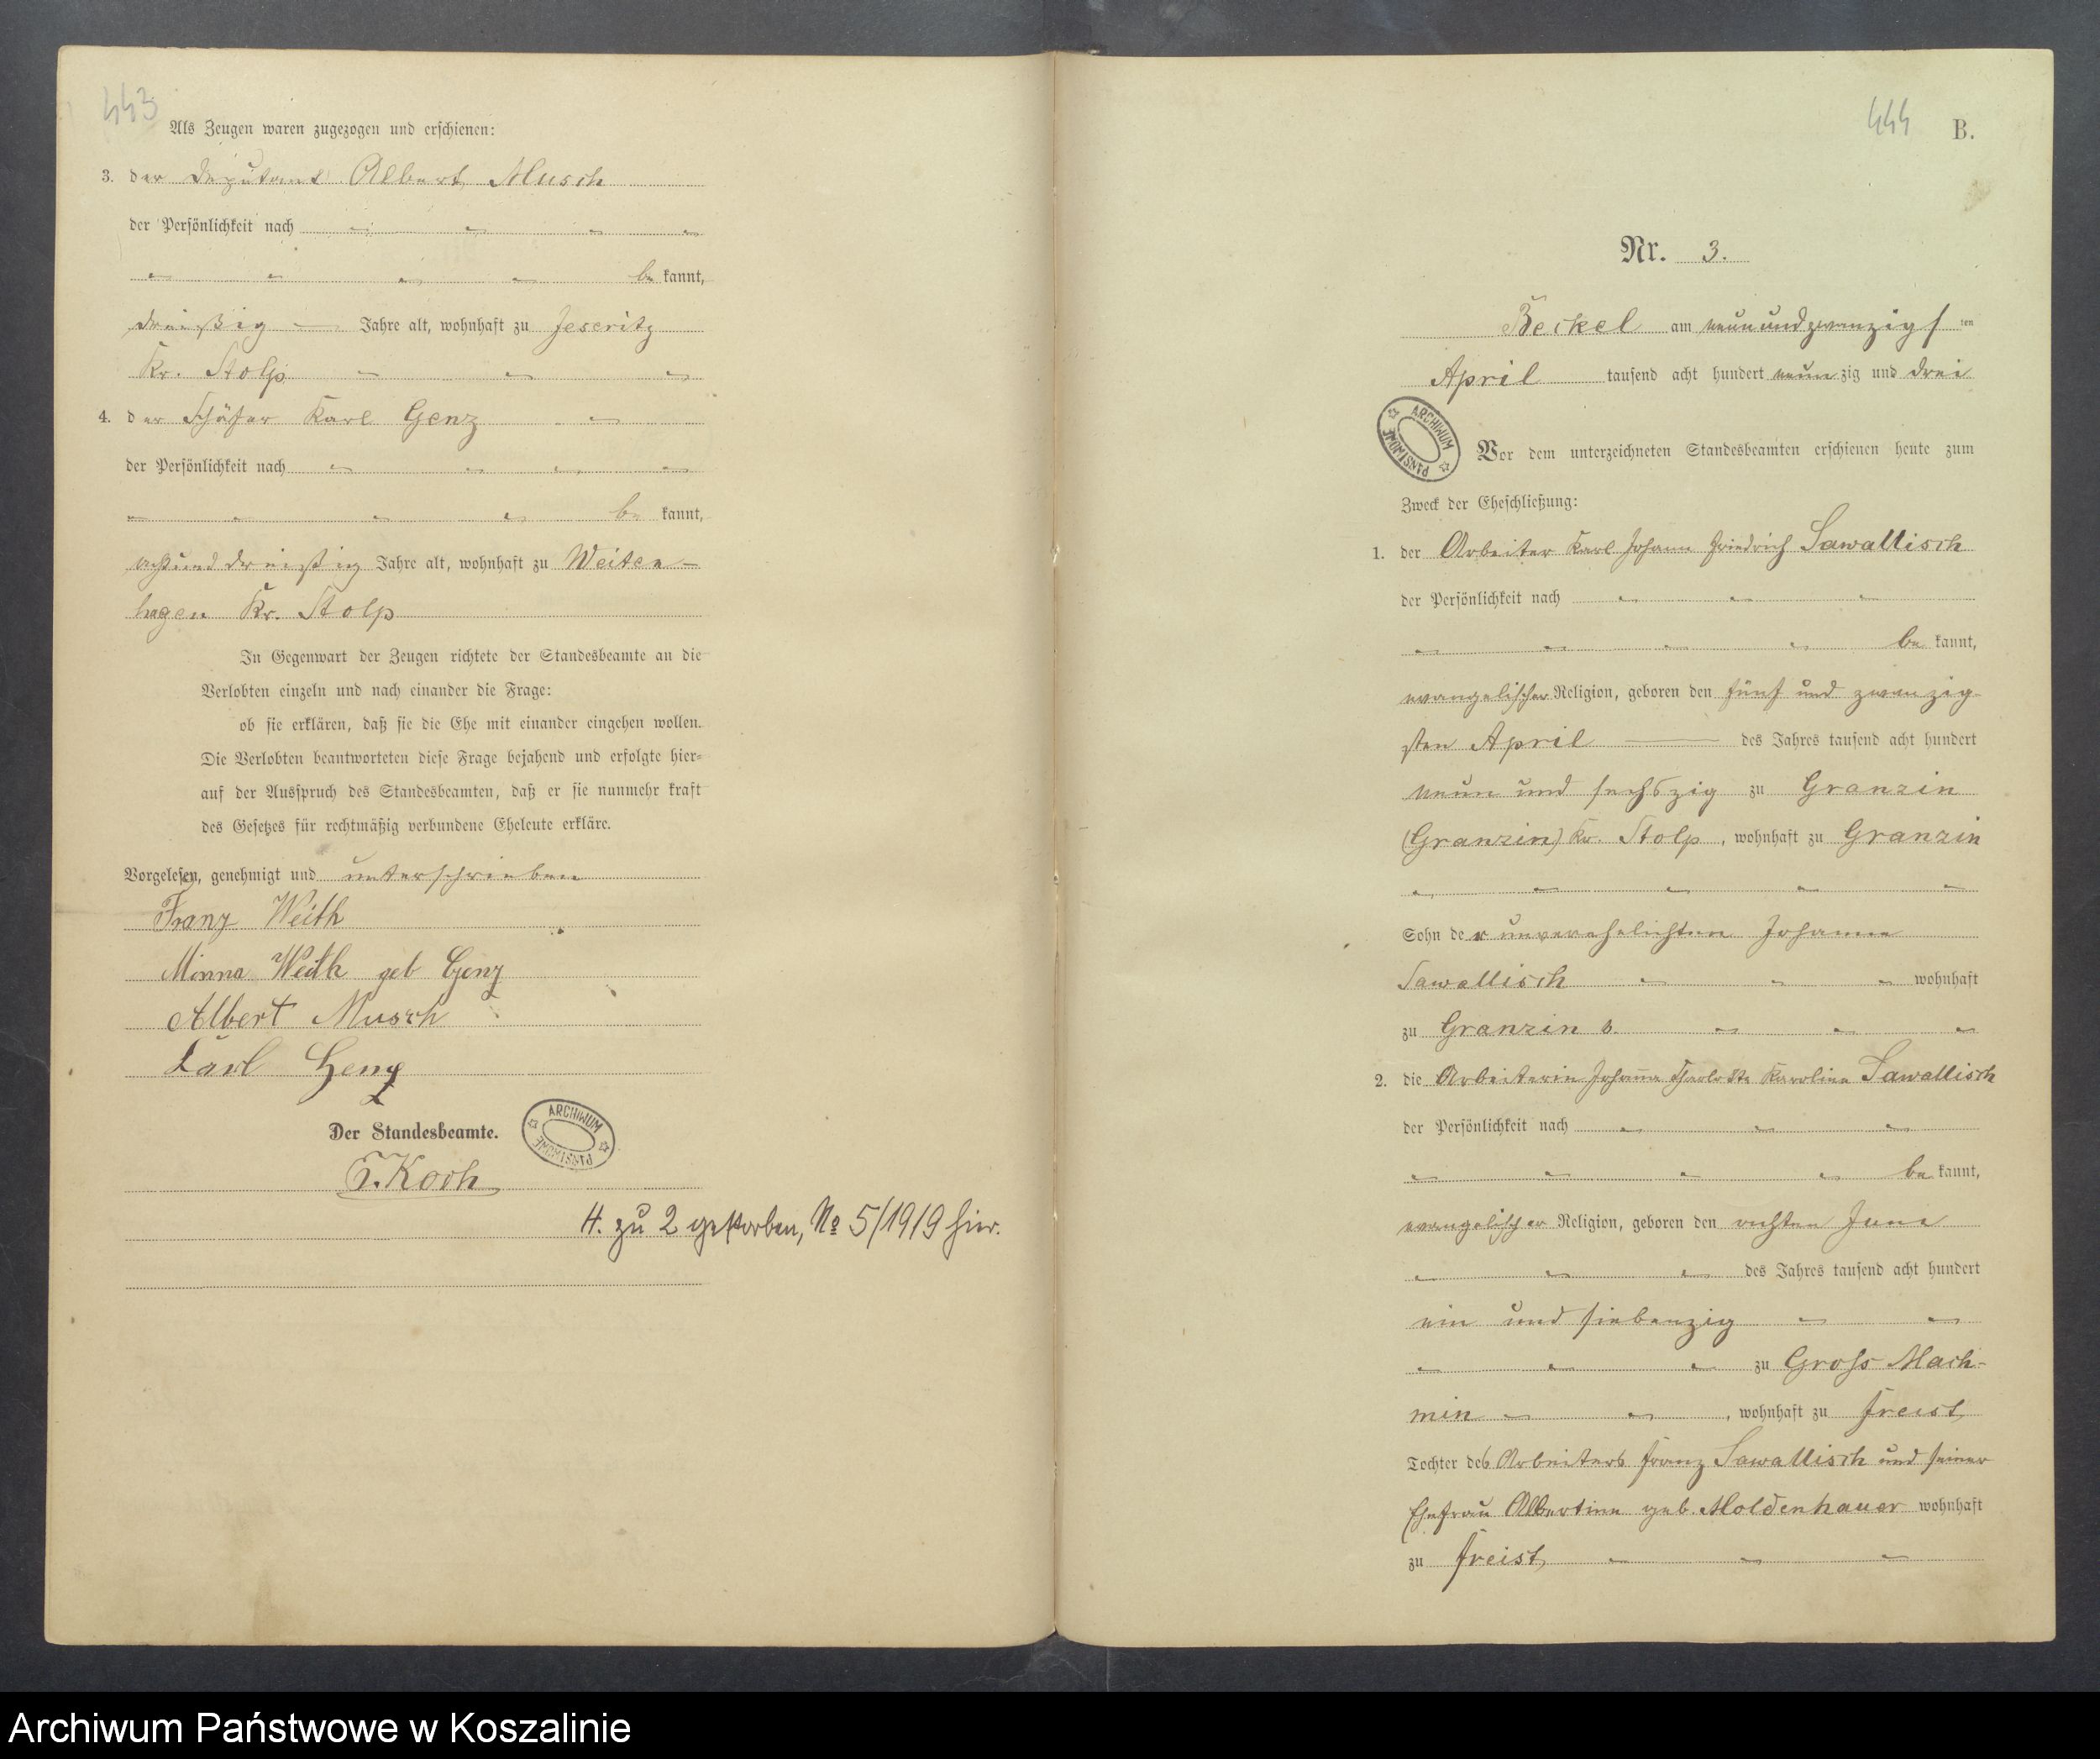 443
Als Zeugen waren zugezogen und erschienen:
3. der Deputant Albert Musch
der Persönlichkeit nach
be kannt,
dreißig — Jahre alt, wohnhaft zu Jeseritz
Kr. Stolp
4. der Schäfer Karl Genz
der Persönlichkeit nach
be kannt,
achtund dreißig Jahre alt, wohnhaft zu Weiten-
hagen Kr. Stolp
In Gegenwart der Zeugen richtete der Standesbeamte an die
Verlobten einzeln und nach einander die Frage:
ob sie erklären, daß sie die Ehe mit einander eingehen wollen.
Die Verlobten beantworteten diese Frage bejahend und erfolgte hier-
auf der Ausspruch des Standesbeamten, daß er sie nunmehr kraft
des Gesetzes für rechtmäßig verbundene Eheleute erkläre.
Vorgelesen, genehmigt und unterschrieben
Franz Weith
Minna Weith geb Genz
Albert Musch
Karl Genz
Der Standesbeamte.
ARCHIWUM PAŃSTWOWE
Koch
H. zu 2 gestorben, No 5/1919 hier.
444 B.
Nr. 3.
Beckel am neunundzwanzigs ten
April tausend acht hundert neun zig und drei
ARCHIWUM PAŃSTWOWE
Vor dem unterzeichneten Standesbeamten erschienen heute zum
Zweck der Eheschließung:
1. der Arbeiter Karl Johann Friedrich Sawallisch
der Persönlichkeit nach
be kannt,
evangelischer Religion, geboren den fünf und zwanzig-
sten April — des Jahres tausend acht hundert
neun und sechszig zu Granzin
(Granzin) Kr. Stolp, wohnhaft zu Granzin
Sohn der unverehelichten Johanne
Sawallisch wohnhaft
zu Granzin
2. die Arbeiterin Johanna Charlotte Karoline Sawallisch
der Persönlichkeit nach
be kannt,
evangelischer Religion, geboren den achten Juni
des Jahres tausend acht hundert
ein und siebenzig
zu Gross Mach-
min, wohnhaft zu Freist
Tochter des Arbeiters Franz Sawallisch und seiner
Ehefrau Albertine geb. Moldenhauer wohnhaft
zu Freist
Archiwum Państwowe w Koszalinie